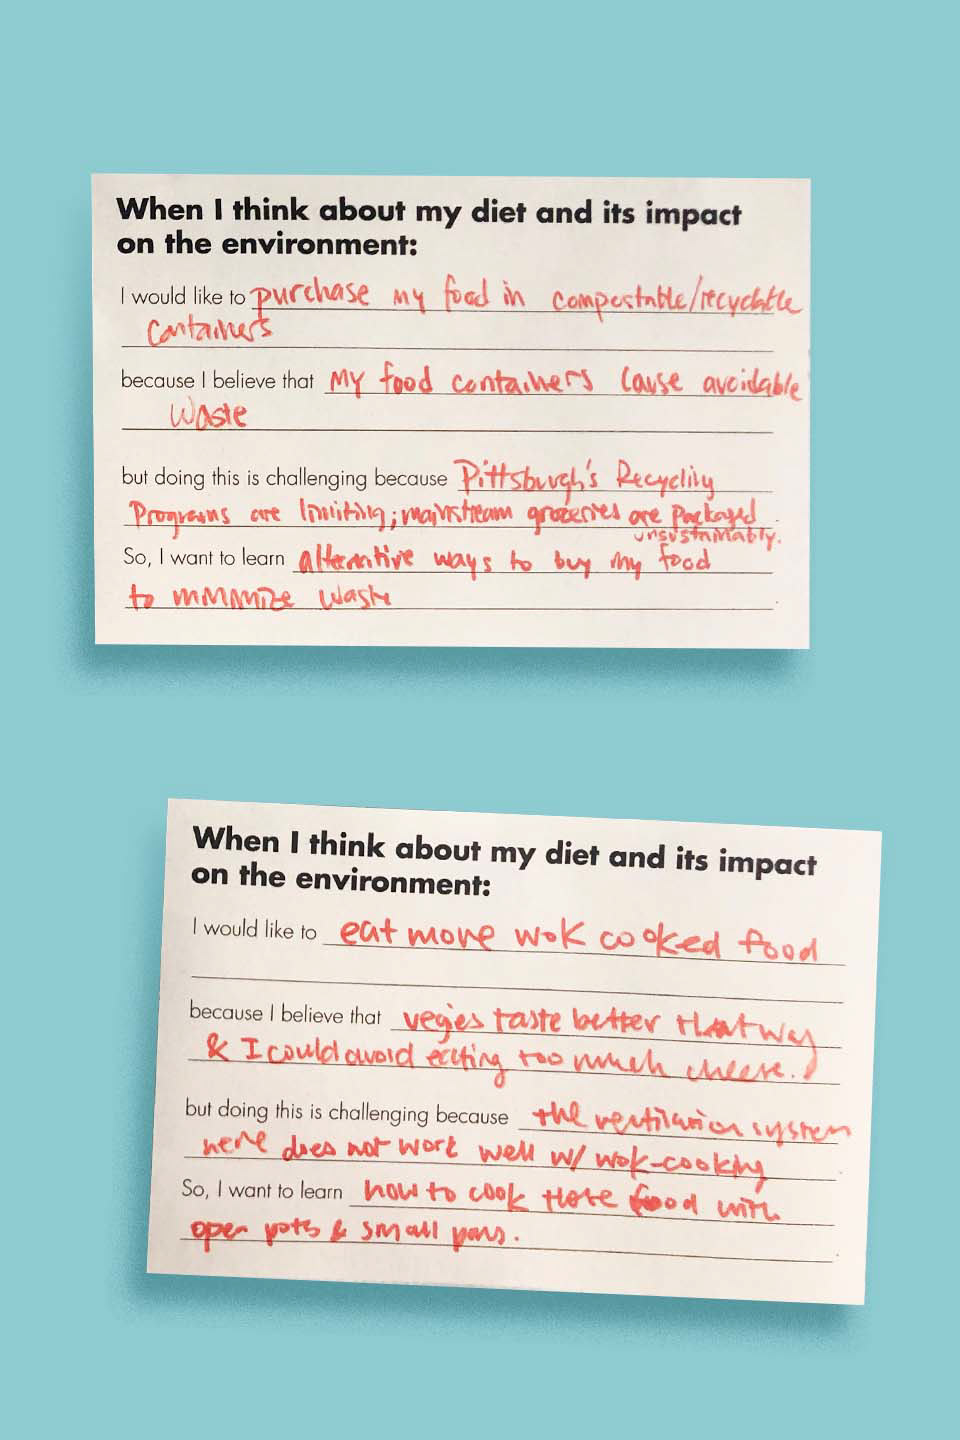 When I think about my diet and its impact
on the environment:
I would like to purchase my food in compostable/recyclable
containers
because I believe that my food containers cause avoidable
waste
but doing this is challenging because Pittsburgh's Recycling
Programs are limiting; mainstream groceries are packaged
unsustainably.
So, I want to learn alternative ways to buy my food
to minimize waste
When I think about my diet and its impact
on the environment:
I would like to eat more wok cooked food
because I believe that vegies taste better that way
& I could avoid eating too much cheese.
but doing this is challenging because the ventilation system
here does not work well w/ wok-cooking
So, I want to learn how to cook those food with
open pots & small pans.